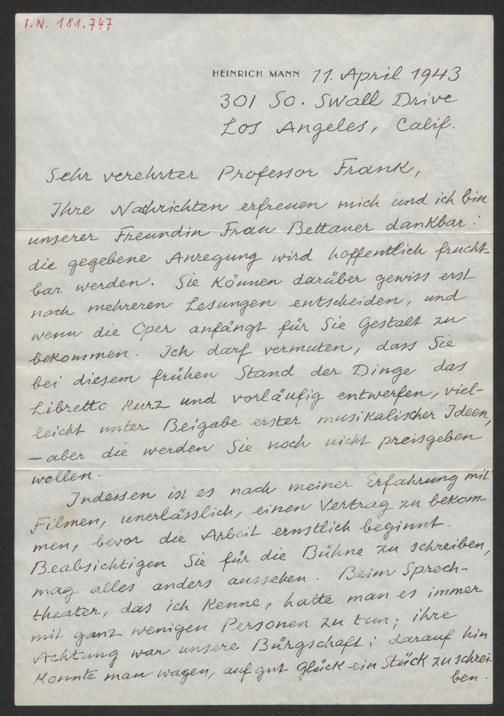 I.N. 181.747
HEINRICH MANN 11. April 1943
301 So. Swall Drive
Los Angeles, Calif.
Sehr verehrter Professor Frank,
Ihre Nachrichten erfreuen mich und ich bin
unserer Freundin Frau Bettauer dankbar:
die gegebene Anregung wird hoffentlich frucht-
bar werden. Sie können darüber gewiss erst
nach mehreren Lesungen entscheiden, und
wenn die Oper anfängt für Sie Gestalt zu
bekommen. Ich darf vermuten, dass Sie
bei diesem frühen Stand der Dinge das
Libretto kurz und vorläufig entwerfen, viel-
leicht unter Beigabe erster musikalischer Ideen,
– aber die werden Sie noch nicht preisgeben
wollen.
Indessen ist es nach meiner Erfahrung mit
Filmen, unerlässlich, einen Vertrag zu bekom-
men, bevor die Arbeit ernstlich beginnt.
Beabsichtigen Sie für die Bühne zu schreiben,
mag alles anders aussehen. Beim Sprech-
theater, das ich kenne, hatte man es immer
mit ganz wenigen Personen zu tun; ihre
Achtung war unsere Bürgschaft; darauf hin
konnte man wagen, auf gut Glück ein Stück zu schrei-
ben.